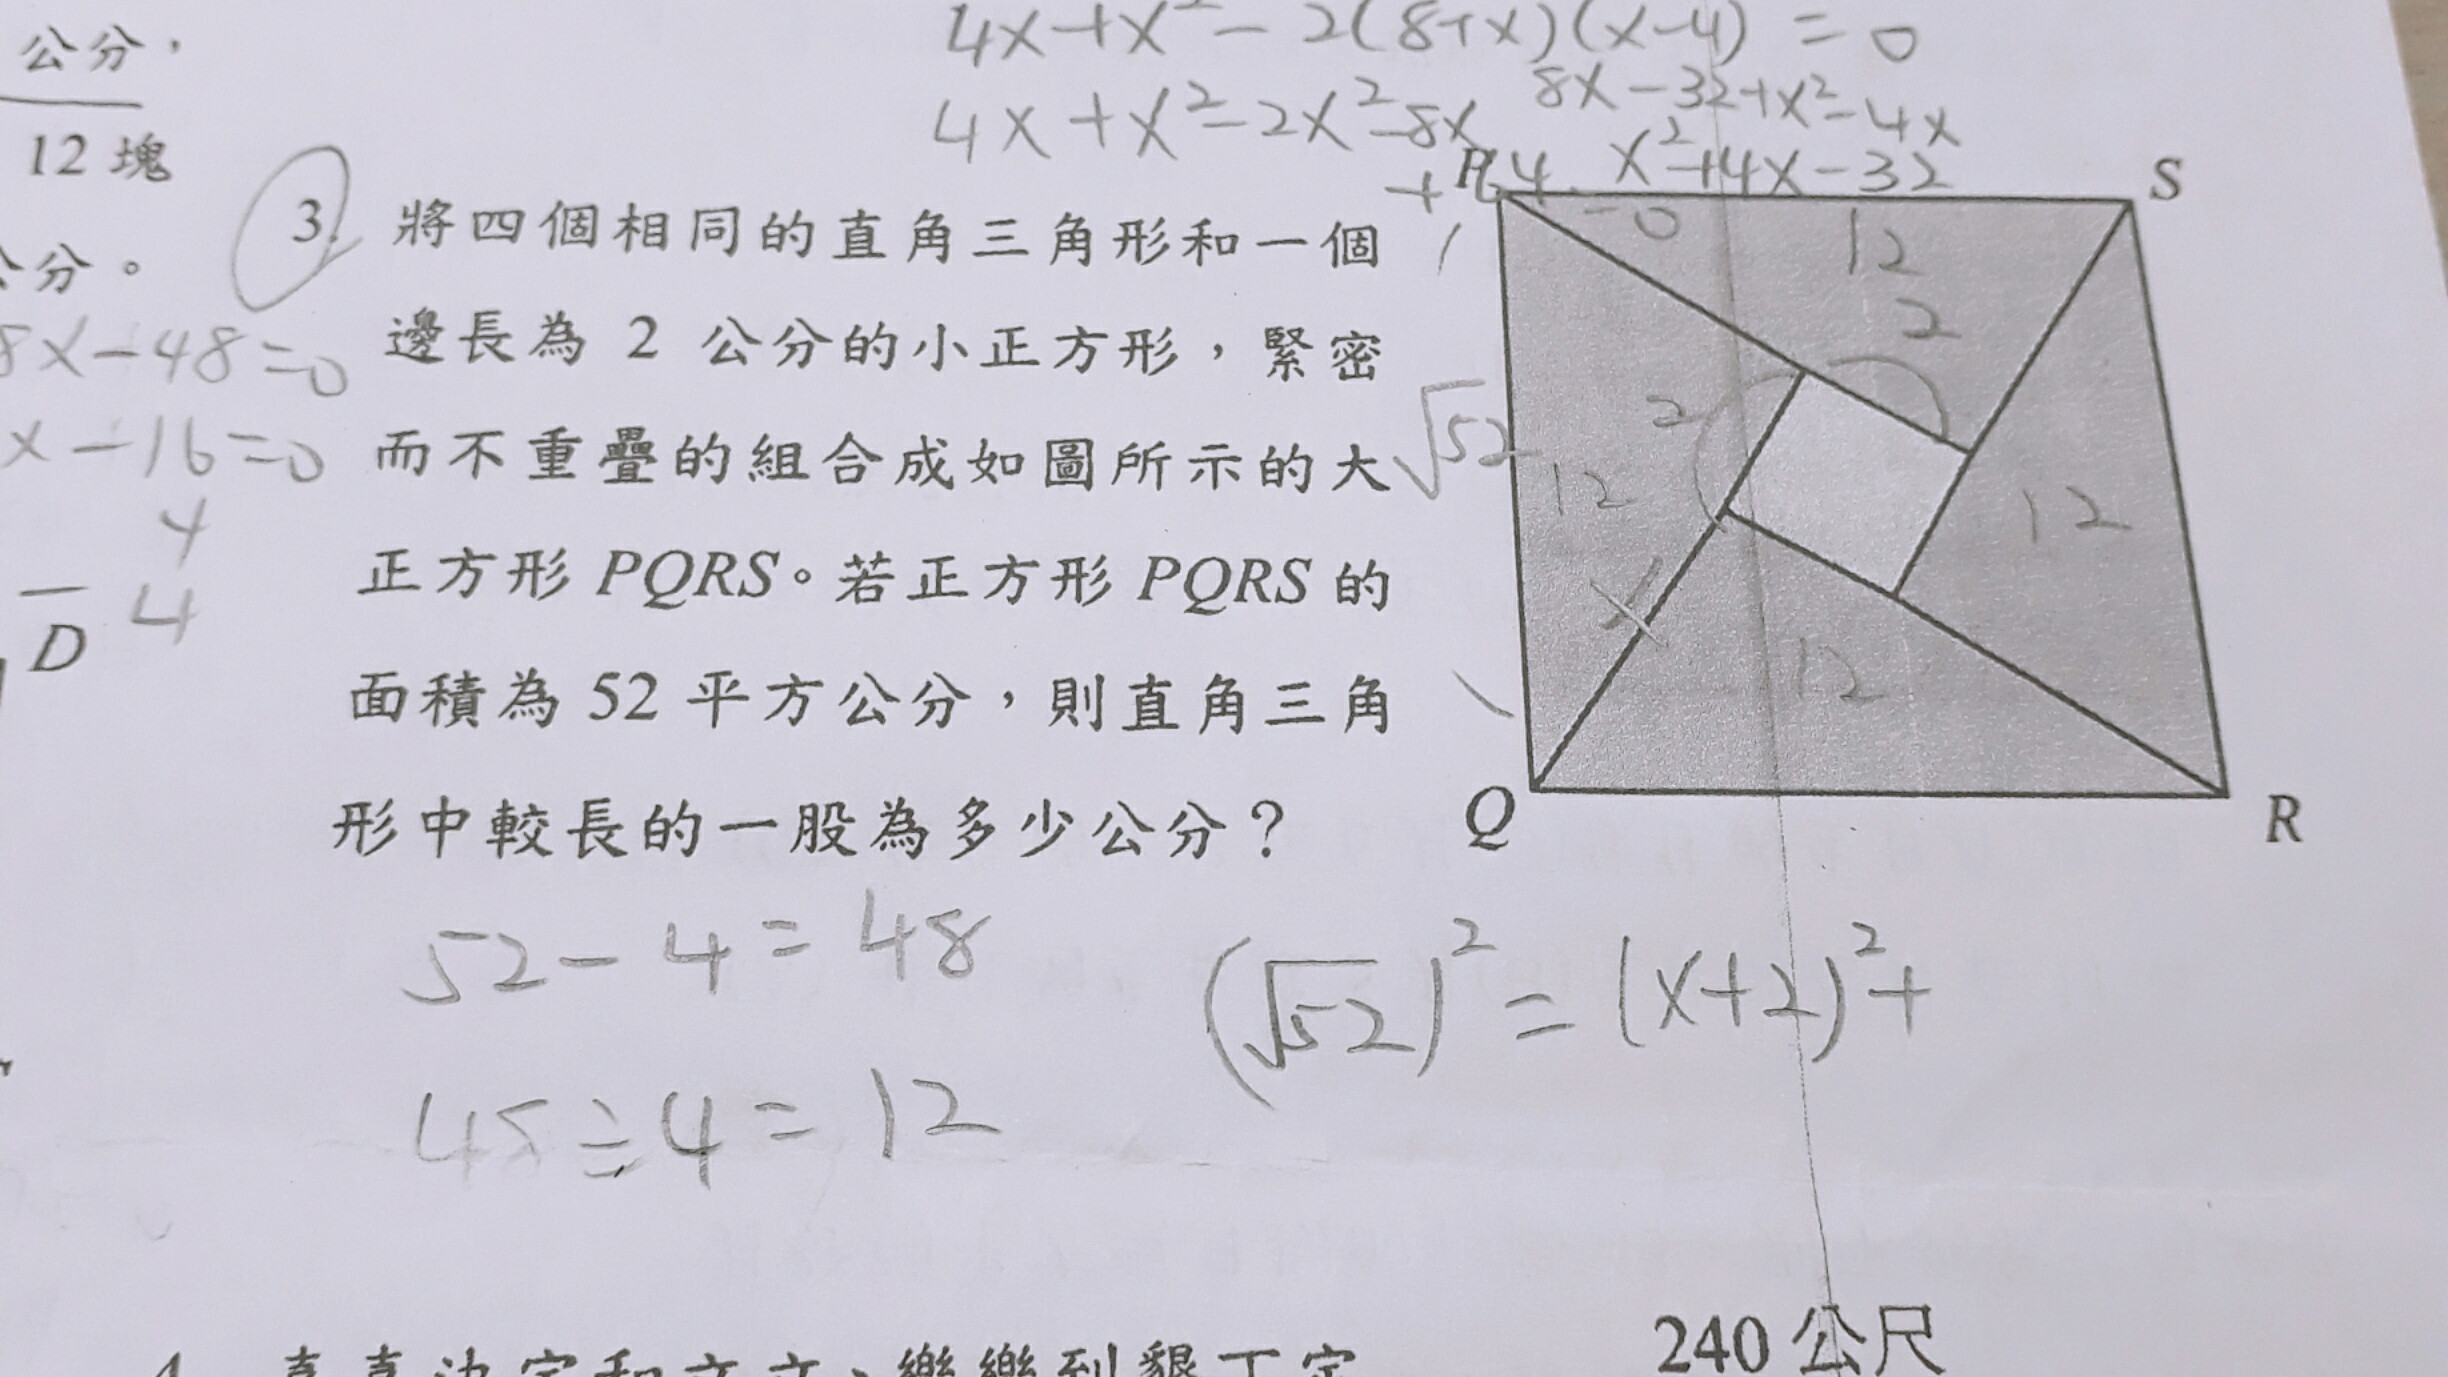 4x+x²-2(8+x)(x-4)=0
8x-32+x²-4x
4x+x²-2x²-8x
x²+4x-32
+64
=0
公分，
12 塊
公分。
8x-48=0
x-16=0
4
4
D
3. 將四個相同的直角三角形和一個
邊長為 2 公分的小正方形，緊密
而不重疊的組合成如圖所示的大
正方形 PQRS。若正方形 PQRS 的
面積為 52 平方公分，則直角三角
形中較長的一股為多少公分？
P
S
12
2
2
√52
12
12
x
12
Q
R
52-4=48
(√52)²=(x+2)²+
48÷4=12
240 公尺